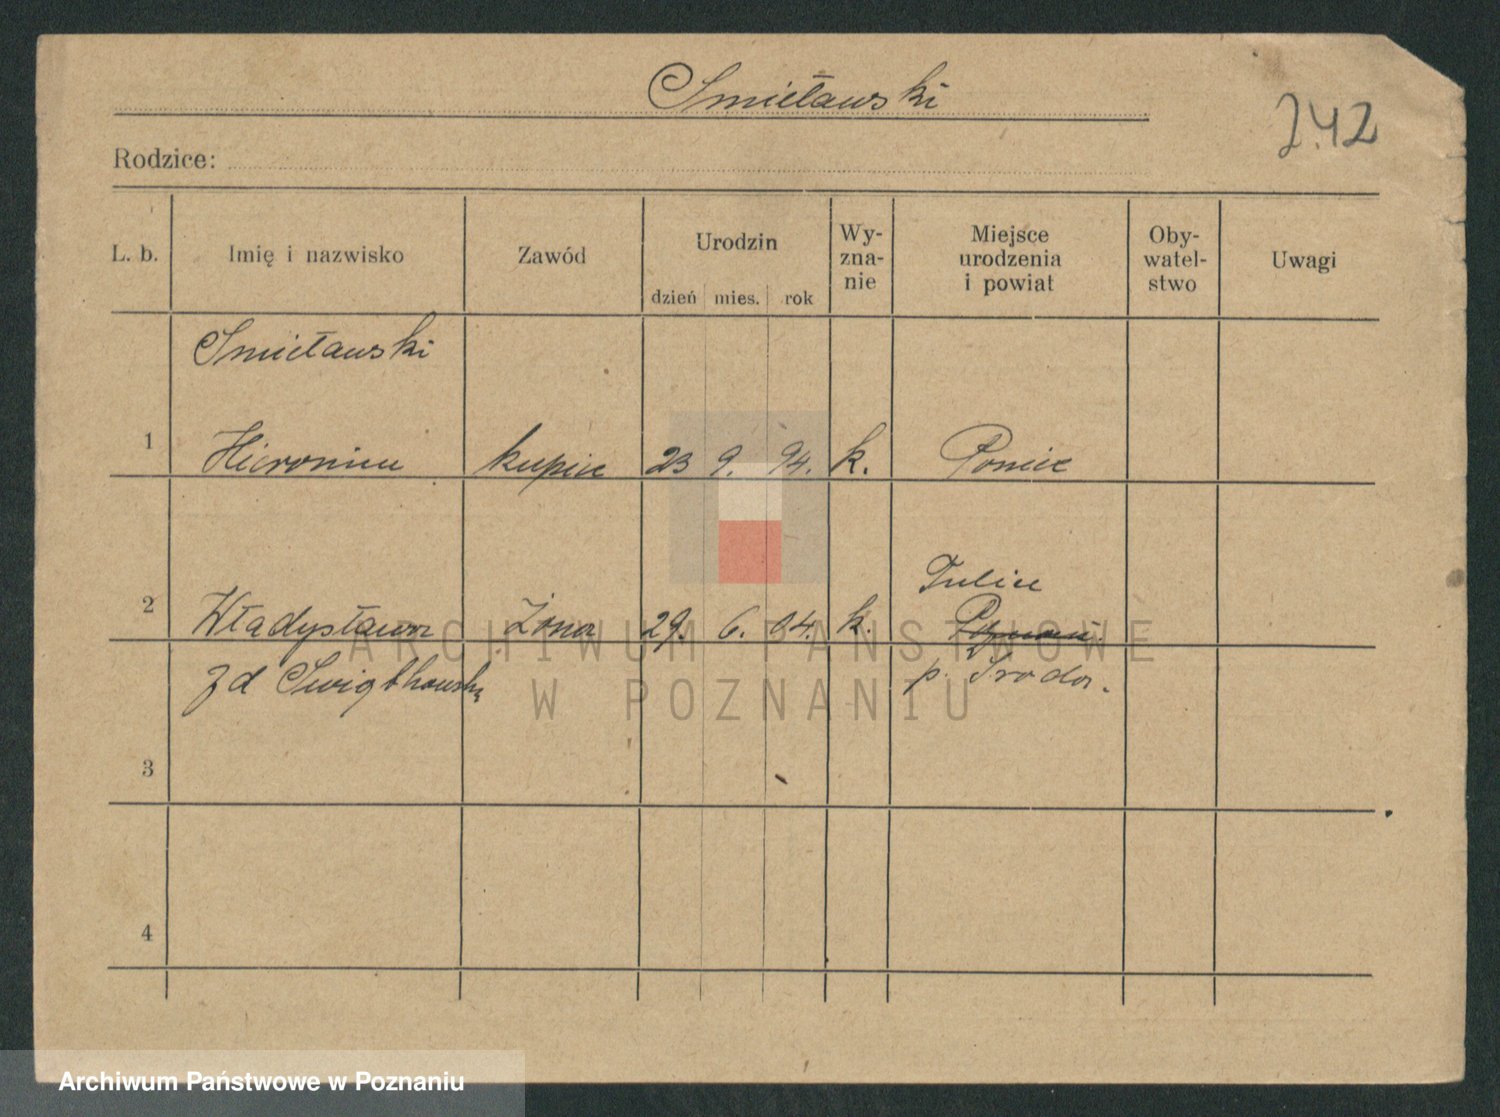 Smiełowski
242
Rodzice:
L. b. Imię i nazwisko Zawód Urodzin dzień mies. rok Wy-zna-nie Miejsce urodzenia i powiat Oby-watel-stwo Uwagi
Smiełowski
1 Hieronim kupiec 23 9. 94. k. Poniec
Tulce
2 Władysława żona 29. 6. 04. k. Poznań.
zd Świątkowska p. Środa.
3
4
ARCHIWUM PAŃSTWOWE
W POZNANIU
Archiwum Państwowe w Poznaniu